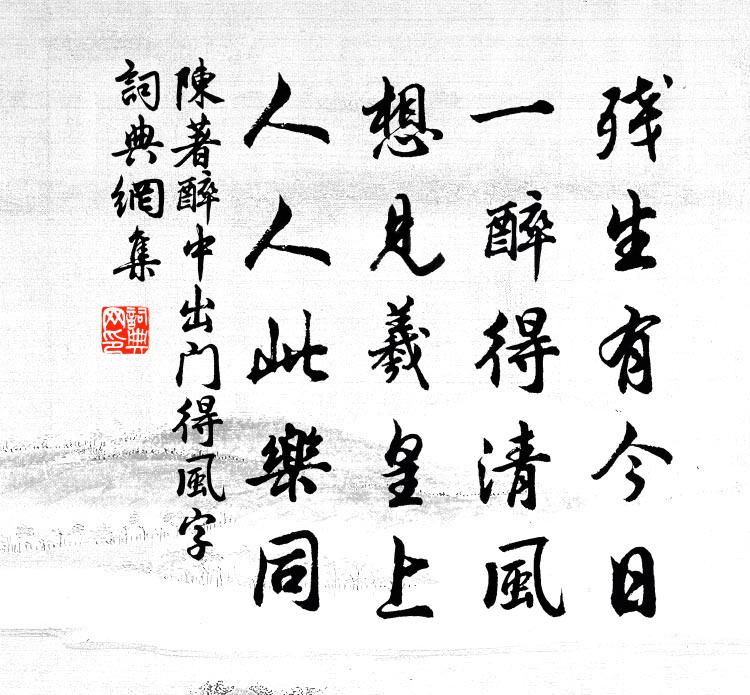 残生有今日
一醉得清風
想見羲皇上
人人此樂同
陳著醉中出門得風字
詞典網集
詞典
网印